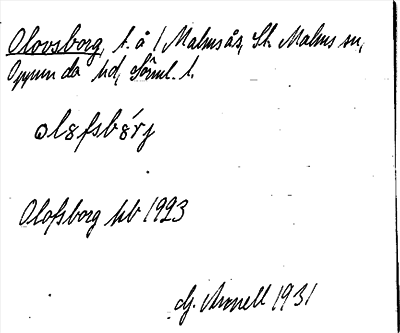 Olovsborg, t. å 1 Malmsås, St. Malms sn,
Oppunda hd, Sörml. l.
olofsbórj
Olofsborg kb 1923
Gj. Arnell 1931